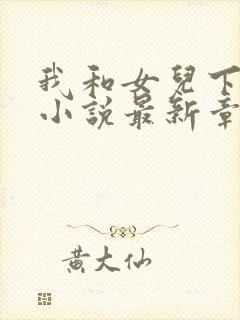 我和女兒下
小說最新章
黃大仙